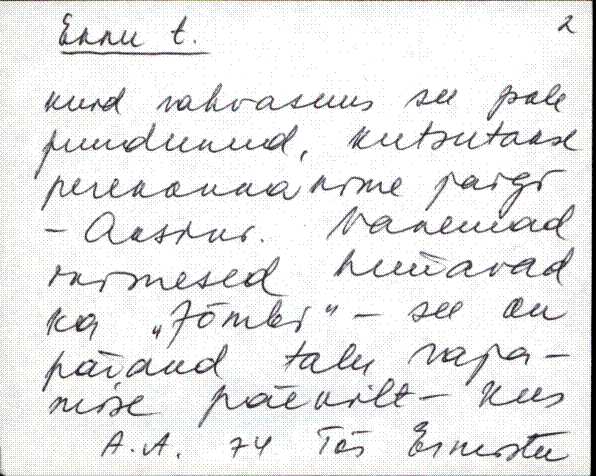 Ennu t. 2
kuid rahvasuus see pole
juurdunud, kutsutakse
perekonnanime järgi
- Aksini. Vanemad
inimesed hüüavad
ka „Jõmbi" - see on
pärand talu raja-
mise päevilt - kus
A.A. 74 Tõs Ermistu